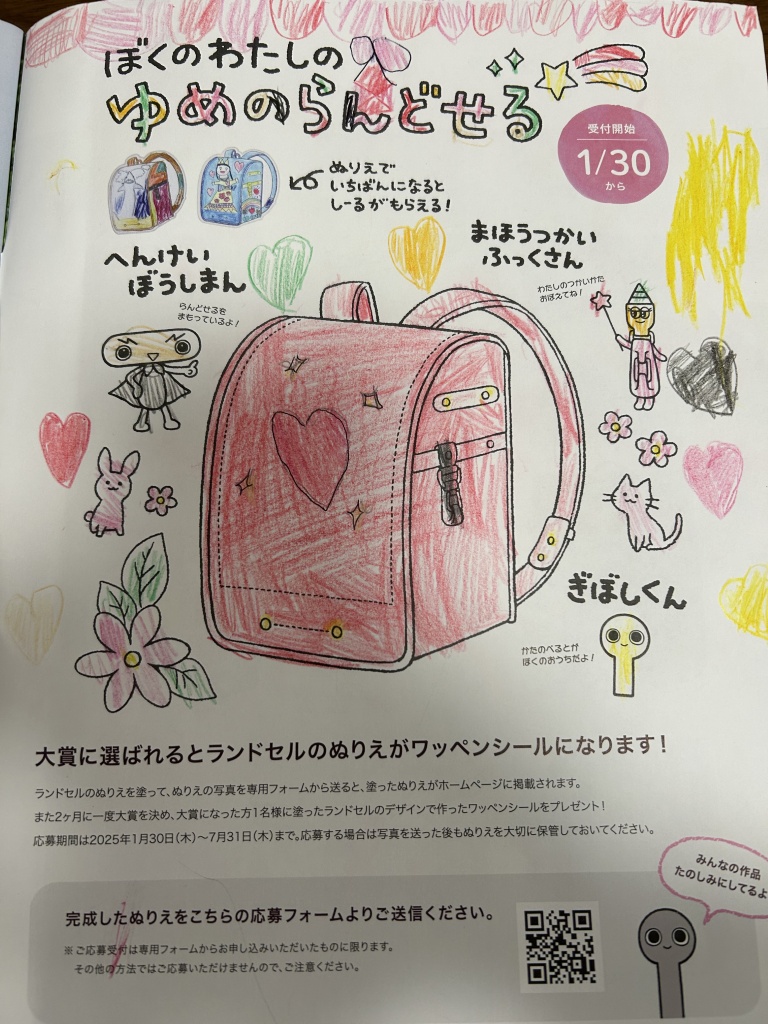 ぼくのわたしの
ゆめのらんどせる
受付開始
1/30
から
ぬりえで
いちばんになると
しーるがもらえる!
へんけい
ぼうしまん
らんどせるを
まもっているよ!
まほうつかい
ふっくさん
わたしのつかいかた
おぼえてね!
ぎぼしくん
かたのべるとが
ぼくのおうちだよ!
大賞に選ばれるとランドセルのぬりえがワッペンシールになります!
ランドセルのぬりえを塗って、ぬりえの写真を専用フォームから送ると、塗ったぬりえがホームページに掲載されます。
また2ヶ月に一度大賞を決め、大賞になった方1名様に塗ったランドセルのデザインで作ったワッペンシールをプレゼント!
応募期間は2025年1月30日(木)〜7月31日(木)まで。応募する場合は写真を送った後もぬりえを大切に保管しておいてください。
みんなの作品
たのしみにしてるよ
完成したぬりえをこちらの応募フォームよりご送信ください。
※ご応募受付は専用フォームからお申し込みいただいたものに限ります。
その他の方法ではご応募いただけませんので、ご注意ください。